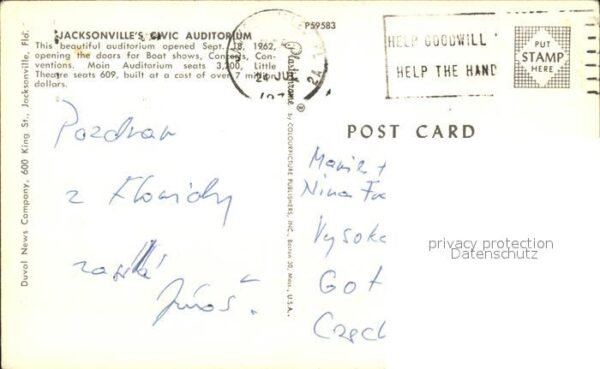 JACKSONVILLE'S CIVIC AUDITORIUM
This beautiful auditorium opened Sept. 18, 1962,
opening the doors for Boat shows, Concerts, Con-
ventions. Main Auditorium seats 3,200, Little
Theatre seats 609, built at a cost of over 7 million
dollars.
Duval News Company, 600 King St., Jacksonville, Fla.
Pozdrav
z Floridy
zasílá
Juroš.
P59583
Plastichrome ®
by COLOURPICTURE PUBLISHERS, INC., Boston 30, Mass., U.S.A.
24 JUL
HELP GOODWILL
HELP THE HAND
PUT
STAMP
HERE
POST CARD
Nina
Vysoké
Got
Czech
privacy protection
Datenschutz